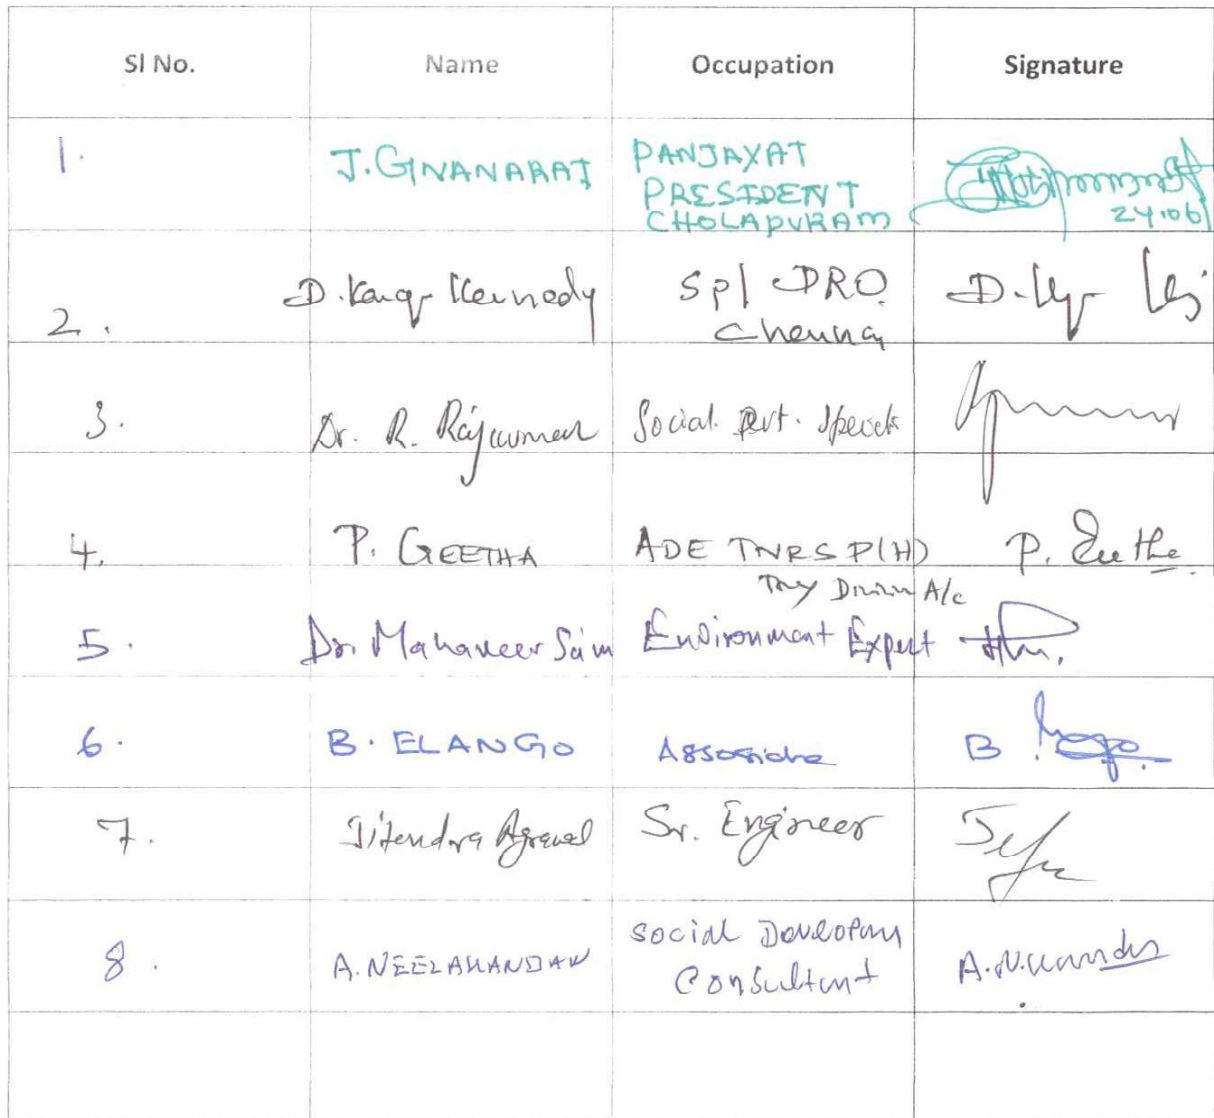 Sl No. Name Occupation Signature
1. J. GNANARAJ PANJAYAT
PRESIDENT
CHOLAPURAM
24.06
2. D. Kennedy Spl DRO.
Chennai D.
3. Dr. R. Rajkumar Social Devt.
4. P. GEETHA ADE TNRSP(H) P. Geetha
A/c
5. Dr. Mahaveer Environment Expert
6. B. ELANGO Associate B
7. Jitendra Agrawal Sr. Engineer
8. A. NEELAKANDAN Social
Consultant A.